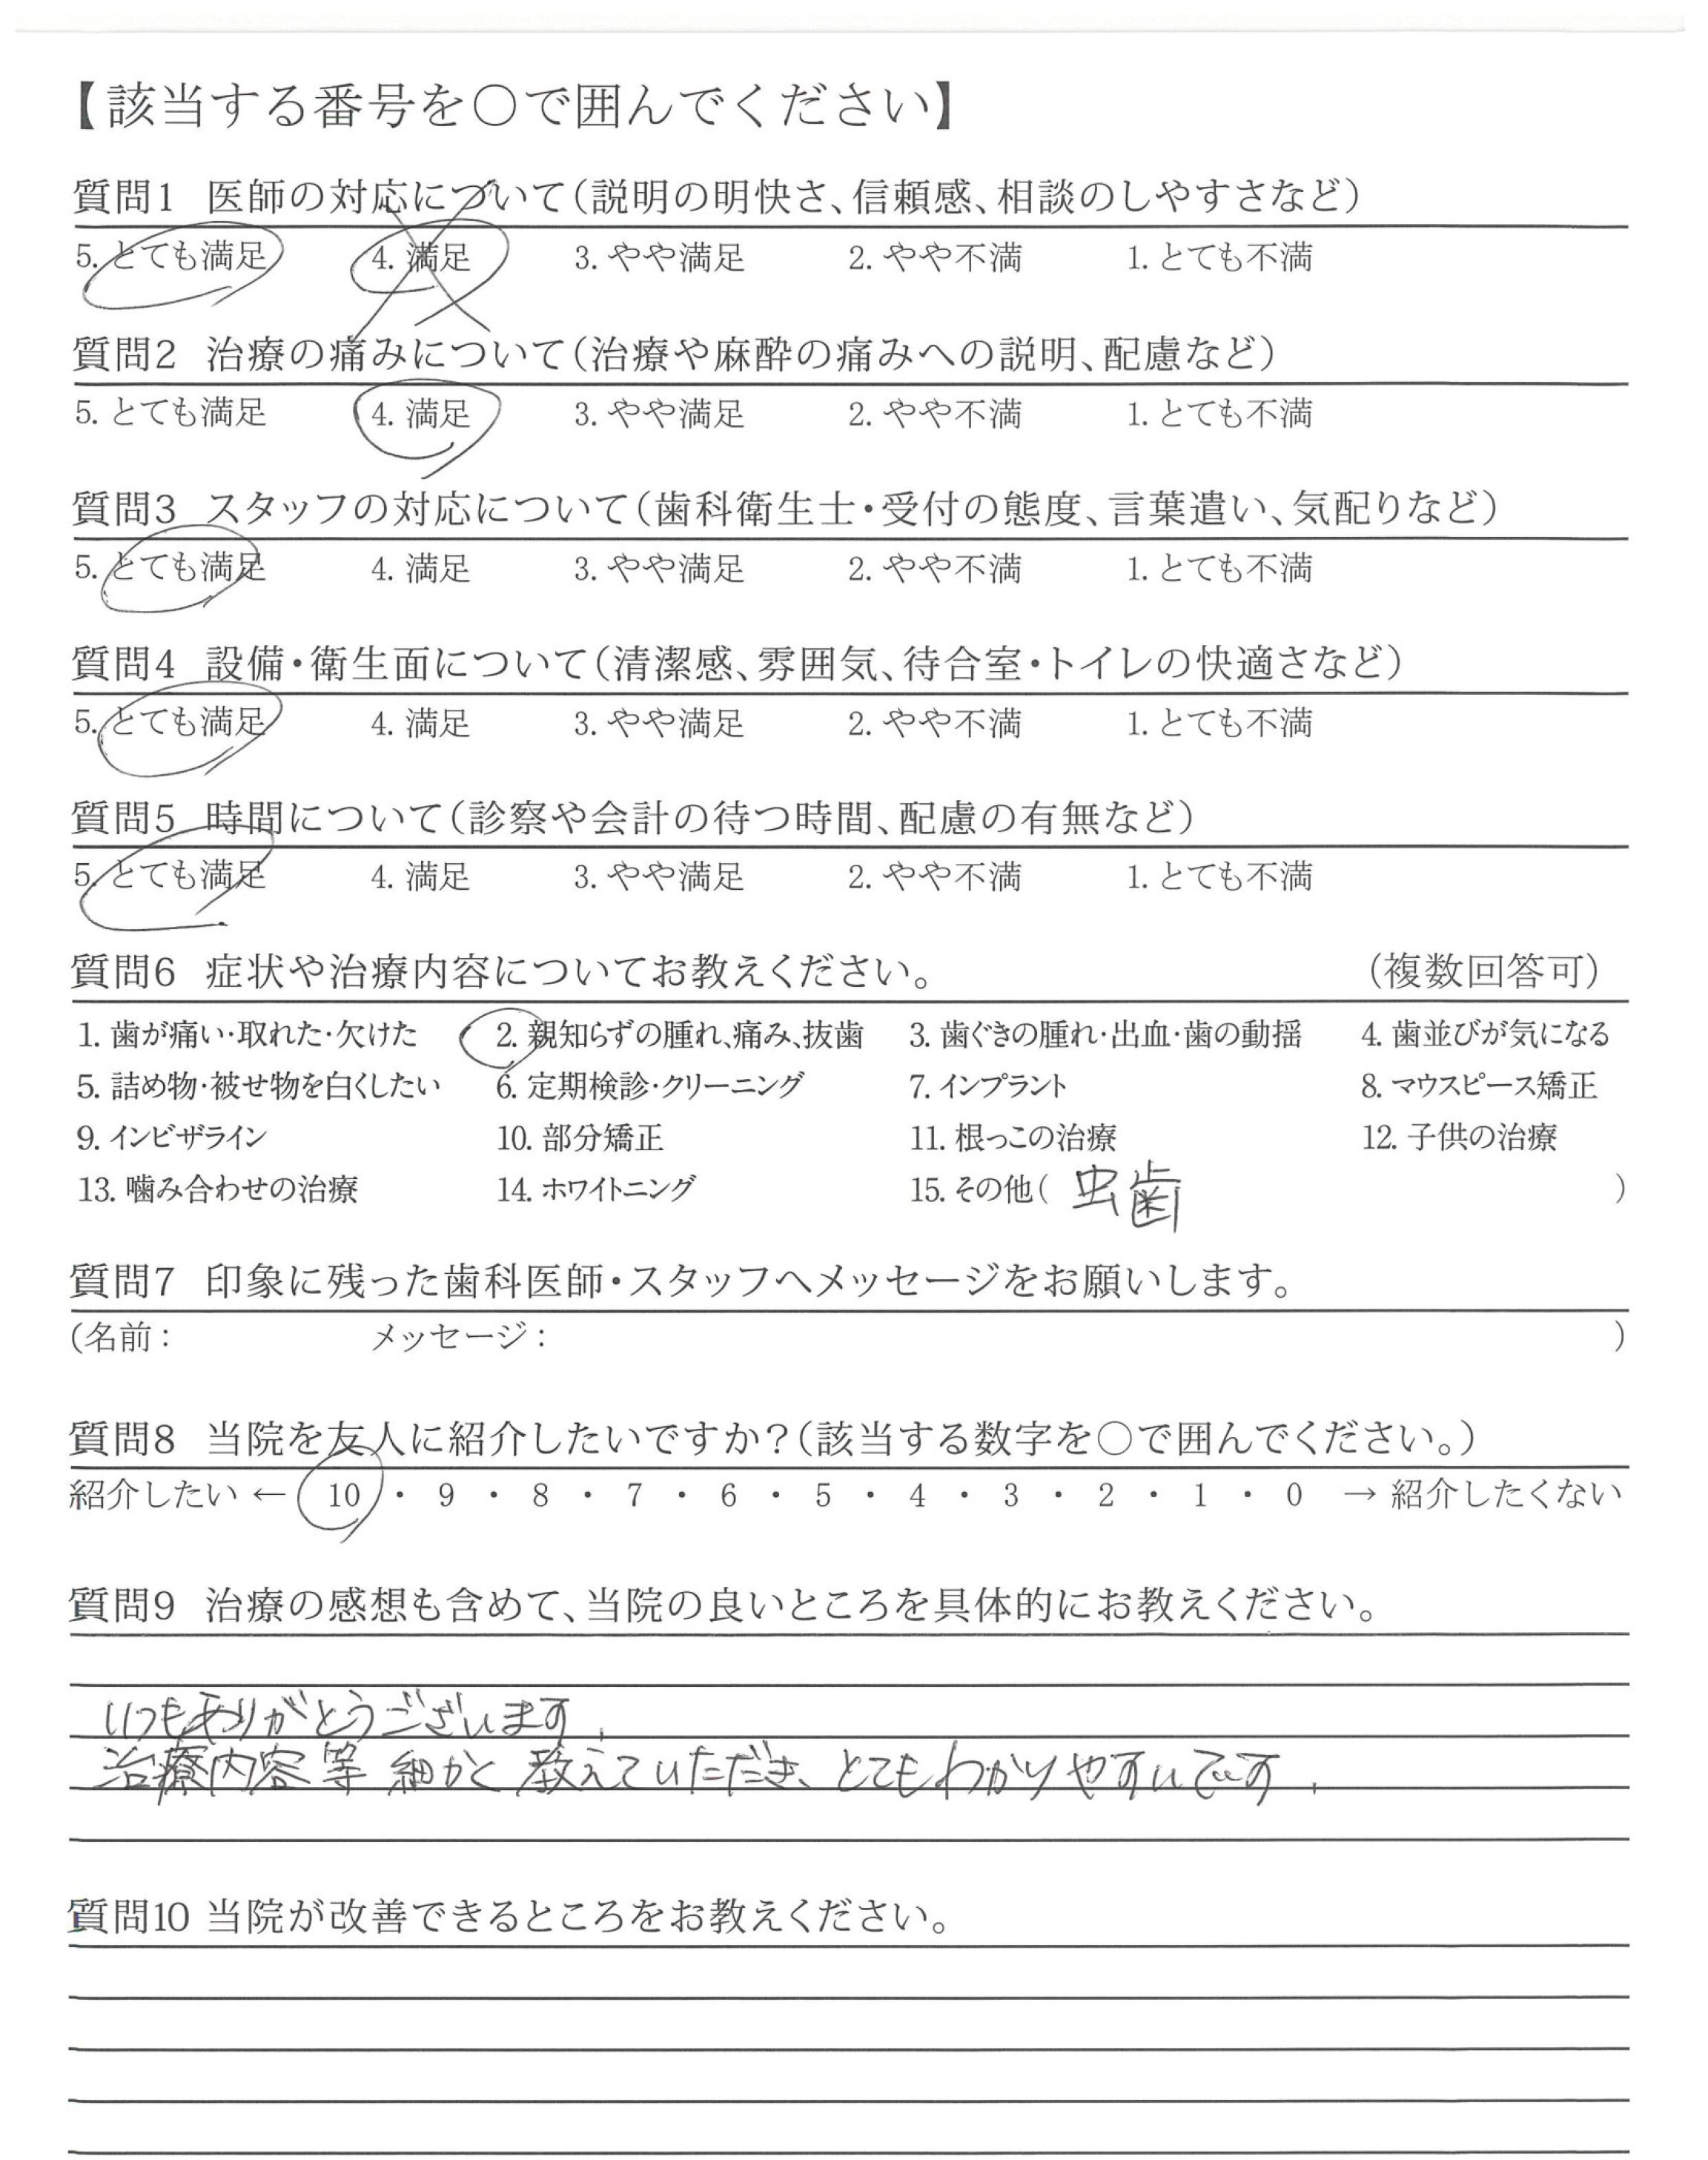 【該当する番号を○で囲んでください】
質問1 医師の対応について(説明の明快さ、信頼感、相談のしやすさなど)
5. とても満足 4. 満足 3. やや満足 2. やや不満 1. とても不満
質問2 治療の痛みについて(治療や麻酔の痛みへの説明、配慮など)
5. とても満足 4. 満足 3. やや満足 2. やや不満 1. とても不満
質問3 スタッフの対応について(歯科衛生士・受付の態度、言葉遣い、気配りなど)
5. とても満足 4. 満足 3. やや満足 2. やや不満 1. とても不満
質問4 設備・衛生面について(清潔感、雰囲気、待合室・トイレの快適さなど)
5. とても満足 4. 満足 3. やや満足 2. やや不満 1. とても不満
質問5 時間について(診察や会計の待つ時間、配慮の有無など)
5. とても満足 4. 満足 3. やや満足 2. やや不満 1. とても不満
質問6 症状や治療内容についてお教えください。 (複数回答可)
1. 歯が痛い・取れた・欠けた 2. 親知らずの腫れ、痛み、抜歯 3. 歯ぐきの腫れ・出血・歯の動揺 4. 歯並びが気になる
5. 詰め物・被せ物を白くしたい 6. 定期検診・クリーニング 7. インプラント 8. マウスピース矯正
9. インビザライン 10. 部分矯正 11. 根っこの治療 12. 子供の治療
13. 噛み合わせの治療 14. ホワイトニング 15. その他( 虫歯 )
質問7 印象に残った歯科医師・スタッフへメッセージをお願いします。
(名前: メッセージ: )
質問8 当院を友人に紹介したいですか?(該当する数字を○で囲んでください。)
紹介したい ← 10 ・ 9 ・ 8 ・ 7 ・ 6 ・ 5 ・ 4 ・ 3 ・ 2 ・ 1 ・ 0 → 紹介したくない
質問9 治療の感想も含めて、当院の良いところを具体的にお教えください。
いつもありがとうございます.
治療内容等 細かく 教えていただき、とてもわかりやすいです.
質問10 当院が改善できるところをお教えください。